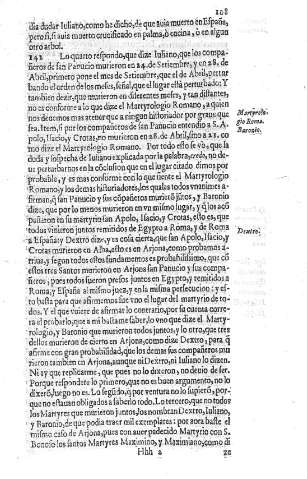 108
dia dudar Iuliano, como he dicho, de que auia muerto en España,
pero si, si auia muerto crucificado en palma, ò encina, ò en algun
otro arbol.
142 Lo quarto respondo, que dize Iuliano, que los compa-
ñeros de san Panucio murieron en 24. de Setiembre, y en 28. de
Abril, primero pone el mes de Setiembre, que el de Abril, pertur
bando el orden de los meses, señal, que el lugar està perturbado: Y
tambien dezir, que murieron en diferentes meses, y tan distantes,
no es conforme a lo que dize el Martyrologio Romano, a quien
nos deuemos mas atener que a ningun historiador por graue que
sea. Item, si por los compañeros de san Panucio entendio a S. A-
polo, Isacio, y Crotas, no murieron en 28. de Abril, sino a 21. co-
mo dize el Martyrologio Romano. Por todo esto se vè, que la
duda y sospecha de Iuliano explicada por la palabra, credo, no de-
ue perturbarnos en la cõclusion que en el lugar citado dimos por
probable, y es mas conforme con lo que siente el Martyrologio
Romano, y los demas historiadores, los quales todos vnanimes a-
firman, q̃ san Panucio y sus cõpañeros murieron jũtos, y Baronio
dize, que por lo menos murieron en vn mismo lugar, y q̃ los acõ
pañaron en su martyrio san Apolo, Isacio, y Crotas, esto es, que
todos vinieron juntos remitidos de Egypto a Roma, y de Roma
a España, y Dextro dize, y es cosa cierta, que san Apolo, Isacio, y
Crotas murieron en Alba, esto es en Arjona, como probamos a-
rriua, y segun todos estos fundamentos es probabilissimo, que cõ
estos tres Santos murieron en Arjona san Panucio y sus compa-
ñeros; pues todos fueron presos juntos en Egypto, y remitidos a
Roma, y España al mismo juez, y en la misma persecucion: y es-
to basta para que afirmemos fue vno el lugar del martyrio de to-
dos. Y el que viniere de afirmar lo contrario, por su cuenta corre-
ra el probarlo, que a mi bastame saber, lo vno que dize el Marty-
rologio, y Baronio que murieron todos juntos, y lo otro, que tres
dellos murieron de cierto en Arjona, como dize Dextro, para q̃
afirme con gran probabilidad, que los demas sus compañeros mu
rieron tambien en Arjona, aunque ni Dextro, ni Iuliano lo dizen.
Ni ay que replicarme, que pues no lo dixeron, no deuio de ser.
Porque respondere lo primero, que no es buen argumento, no lo
dixerõ, luego no es. Lo segũdo, q̃ por ventura no lo supierõ, por-
que no estauan obligados a saberlo todo. Lo tercero, que no todos
los Martyres que murieron juntos, los nombran Dextro, Iuliano,
y Baronio, de que podia traer mil exemplares: por aora baste el
mismo caso de Arjona, pues con auer padecido Martyrio con S.
Bonoso los santos Martyres Maximino, y Maximiano, como di
Hhh 2
ze
Martyrolo-
gio Roma.
Baronio.
Dextro.